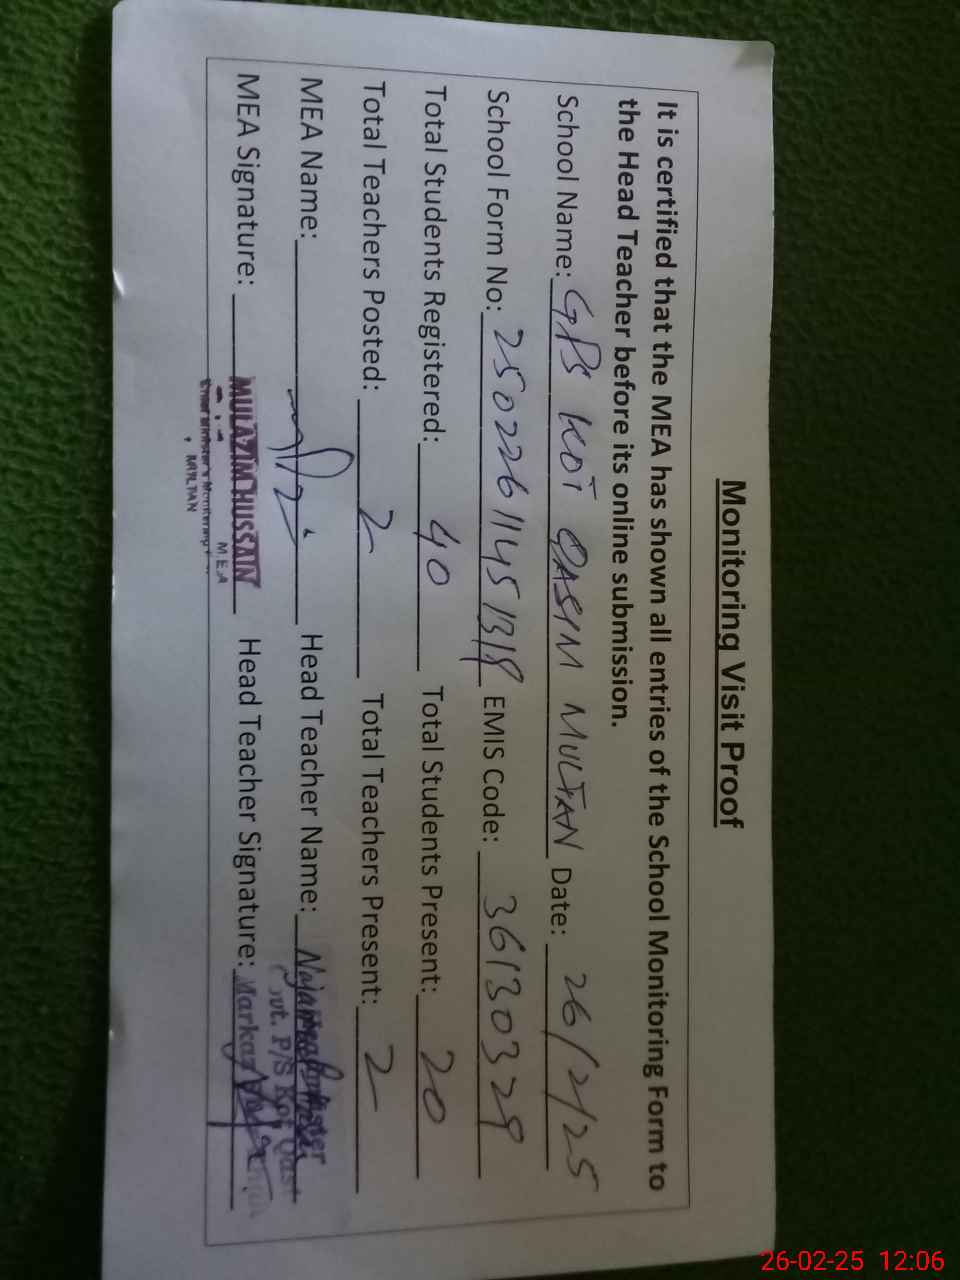 Monitoring Visit Proof
It is certified that the MEA has shown all entries of the School Monitoring Form to
the Head Teacher before its online submission.
School Name: GPS KOT QASIM MULTAN Date: 26/2/25
School Form No: 25022611451318 EMIS Code: 36130329
Total Students Registered: 40 Total Students Present: 20
Total Teachers Posted: 2 Total Teachers Present: 2
MEA Name: Head Teacher Name:
MEA Signature: MULAZIM HUSSAIN Head Teacher Signature: Markaz
M.E.A
MULTAN
P/S Kot
26-02-25 12:06